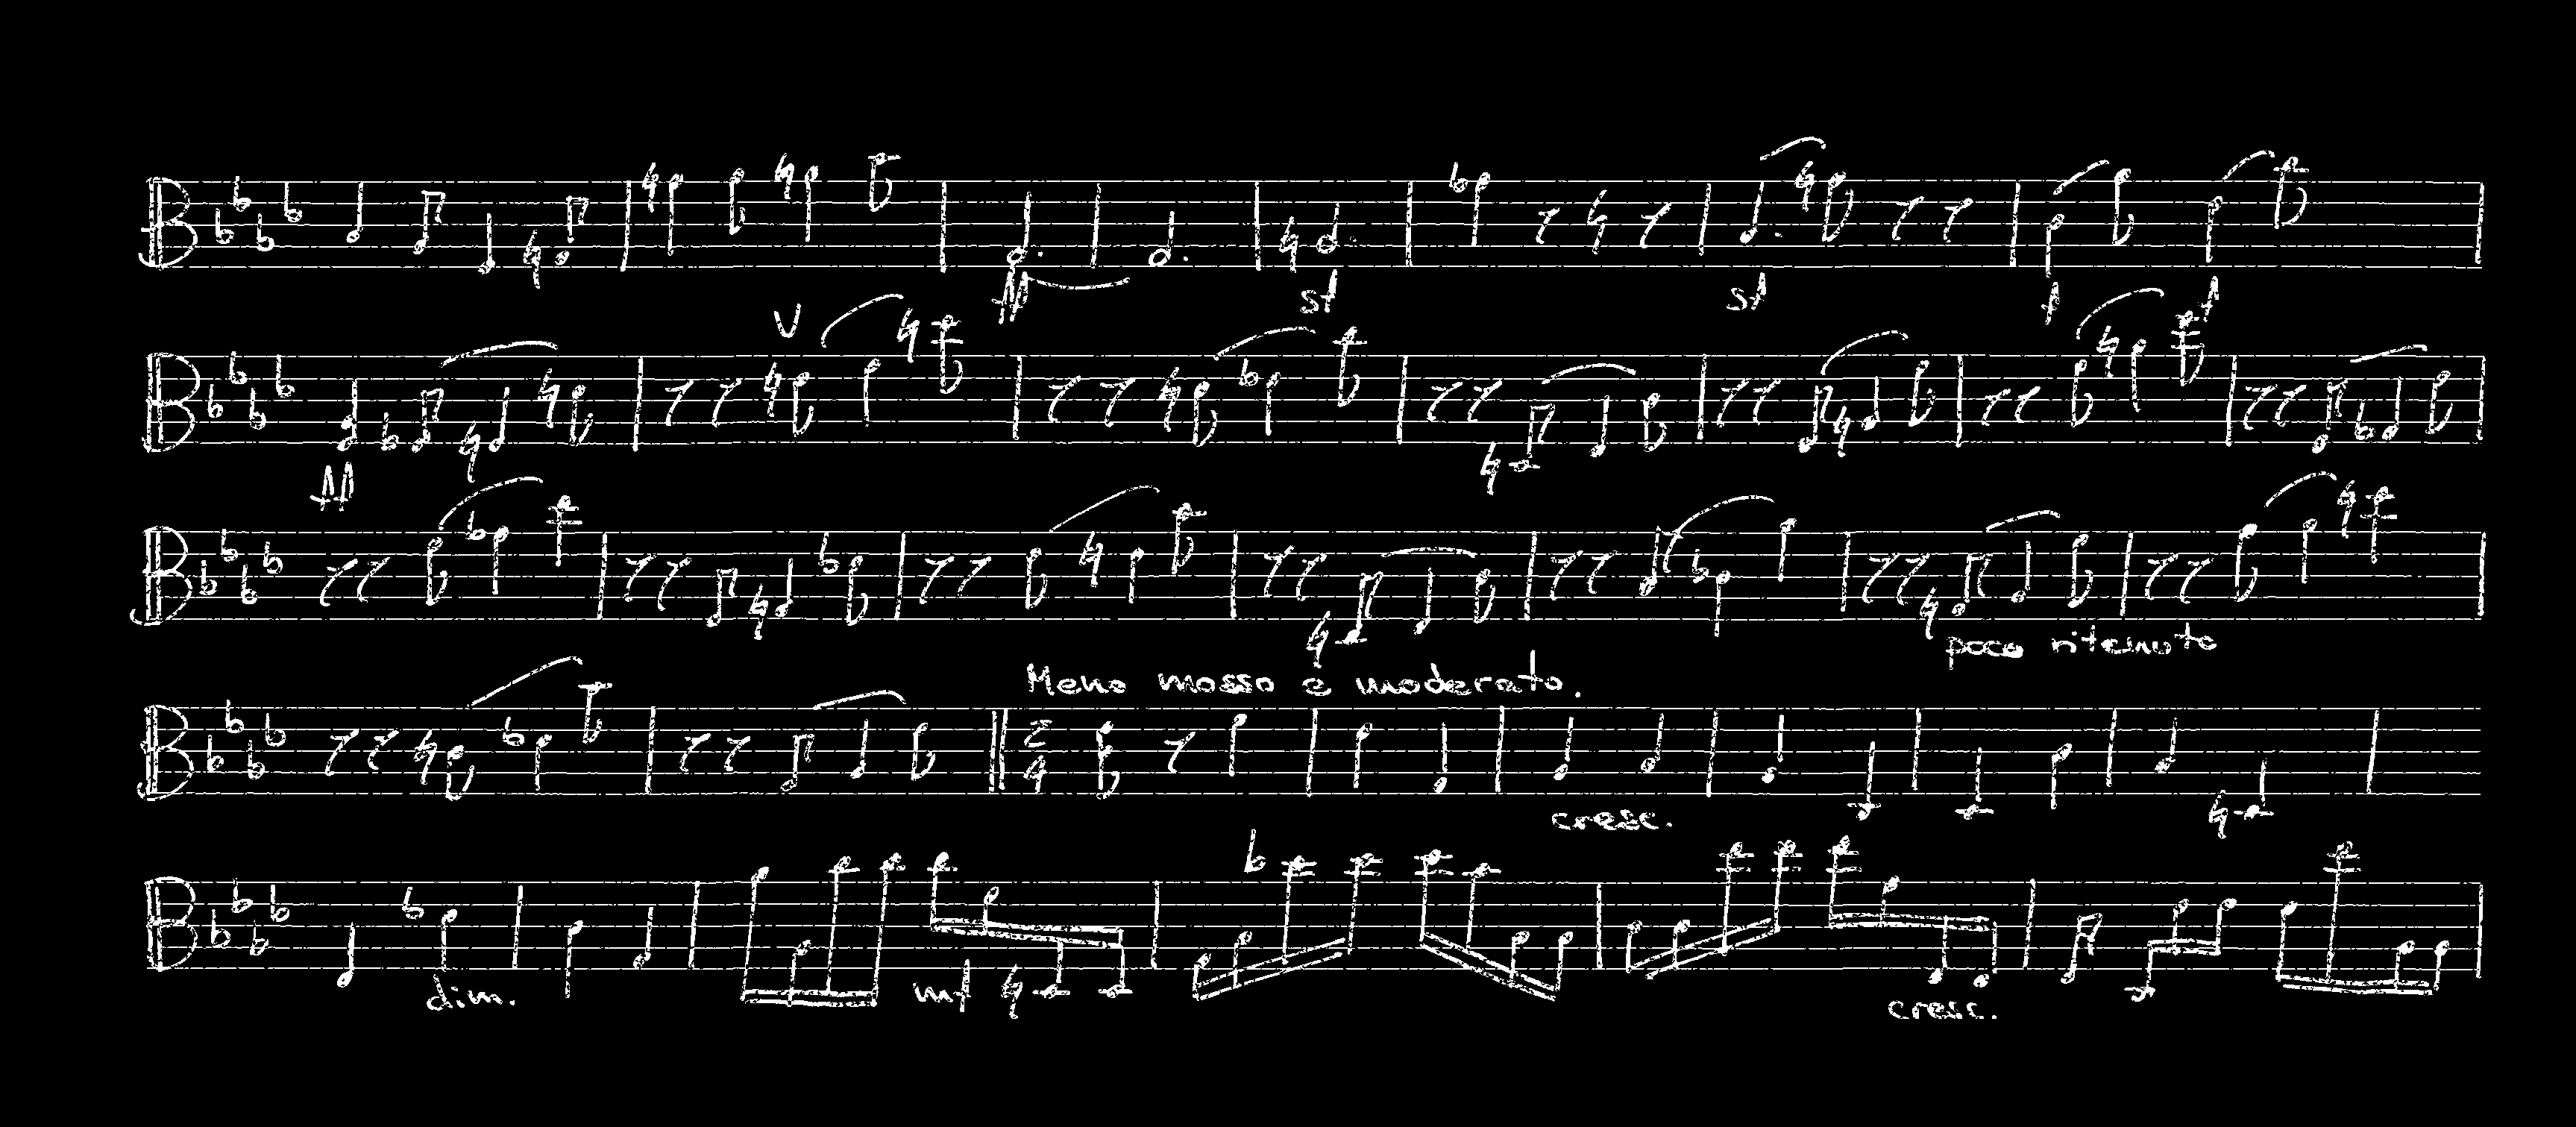 ff sf sf f f
ff
poco ritenuto
Meno mosso e moderato.
2
4
cresc.
dim. mf cresc.